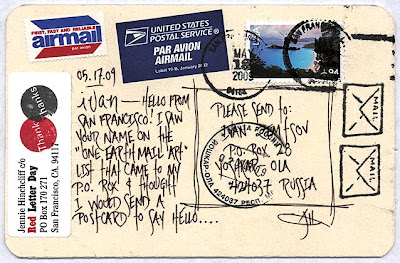 FIRST, FAST AND RELIABLE
airmail
PAR AVION
UNITED STATES
POSTAL SERVICE®
PAR AVION
AIRMAIL
Label 19-B, January 2002
MAY
2009
SAN FRANCISCO
05.17.09
IVAN — HELLO FROM
SAN FRANCISCO! I SAW
YOUR NAME ON THE
"ONE EARTH MAIL ART"
LIST THAT CAME TO MY
P.O. BOX & THOUGHT
I WOULD SEND A
POSTCARD TO SAY HELLO....
Thanks
Thanks
Jennie Hinchcliff c/o
Red Letter Day
PO Box 170 271
San Francisco, CA. 94117
PLEASE SEND TO:
IVAN
P.O. BOX 28
YOSHKAR OLA
424037 RUSSIA
424037
MAIL
MAIL